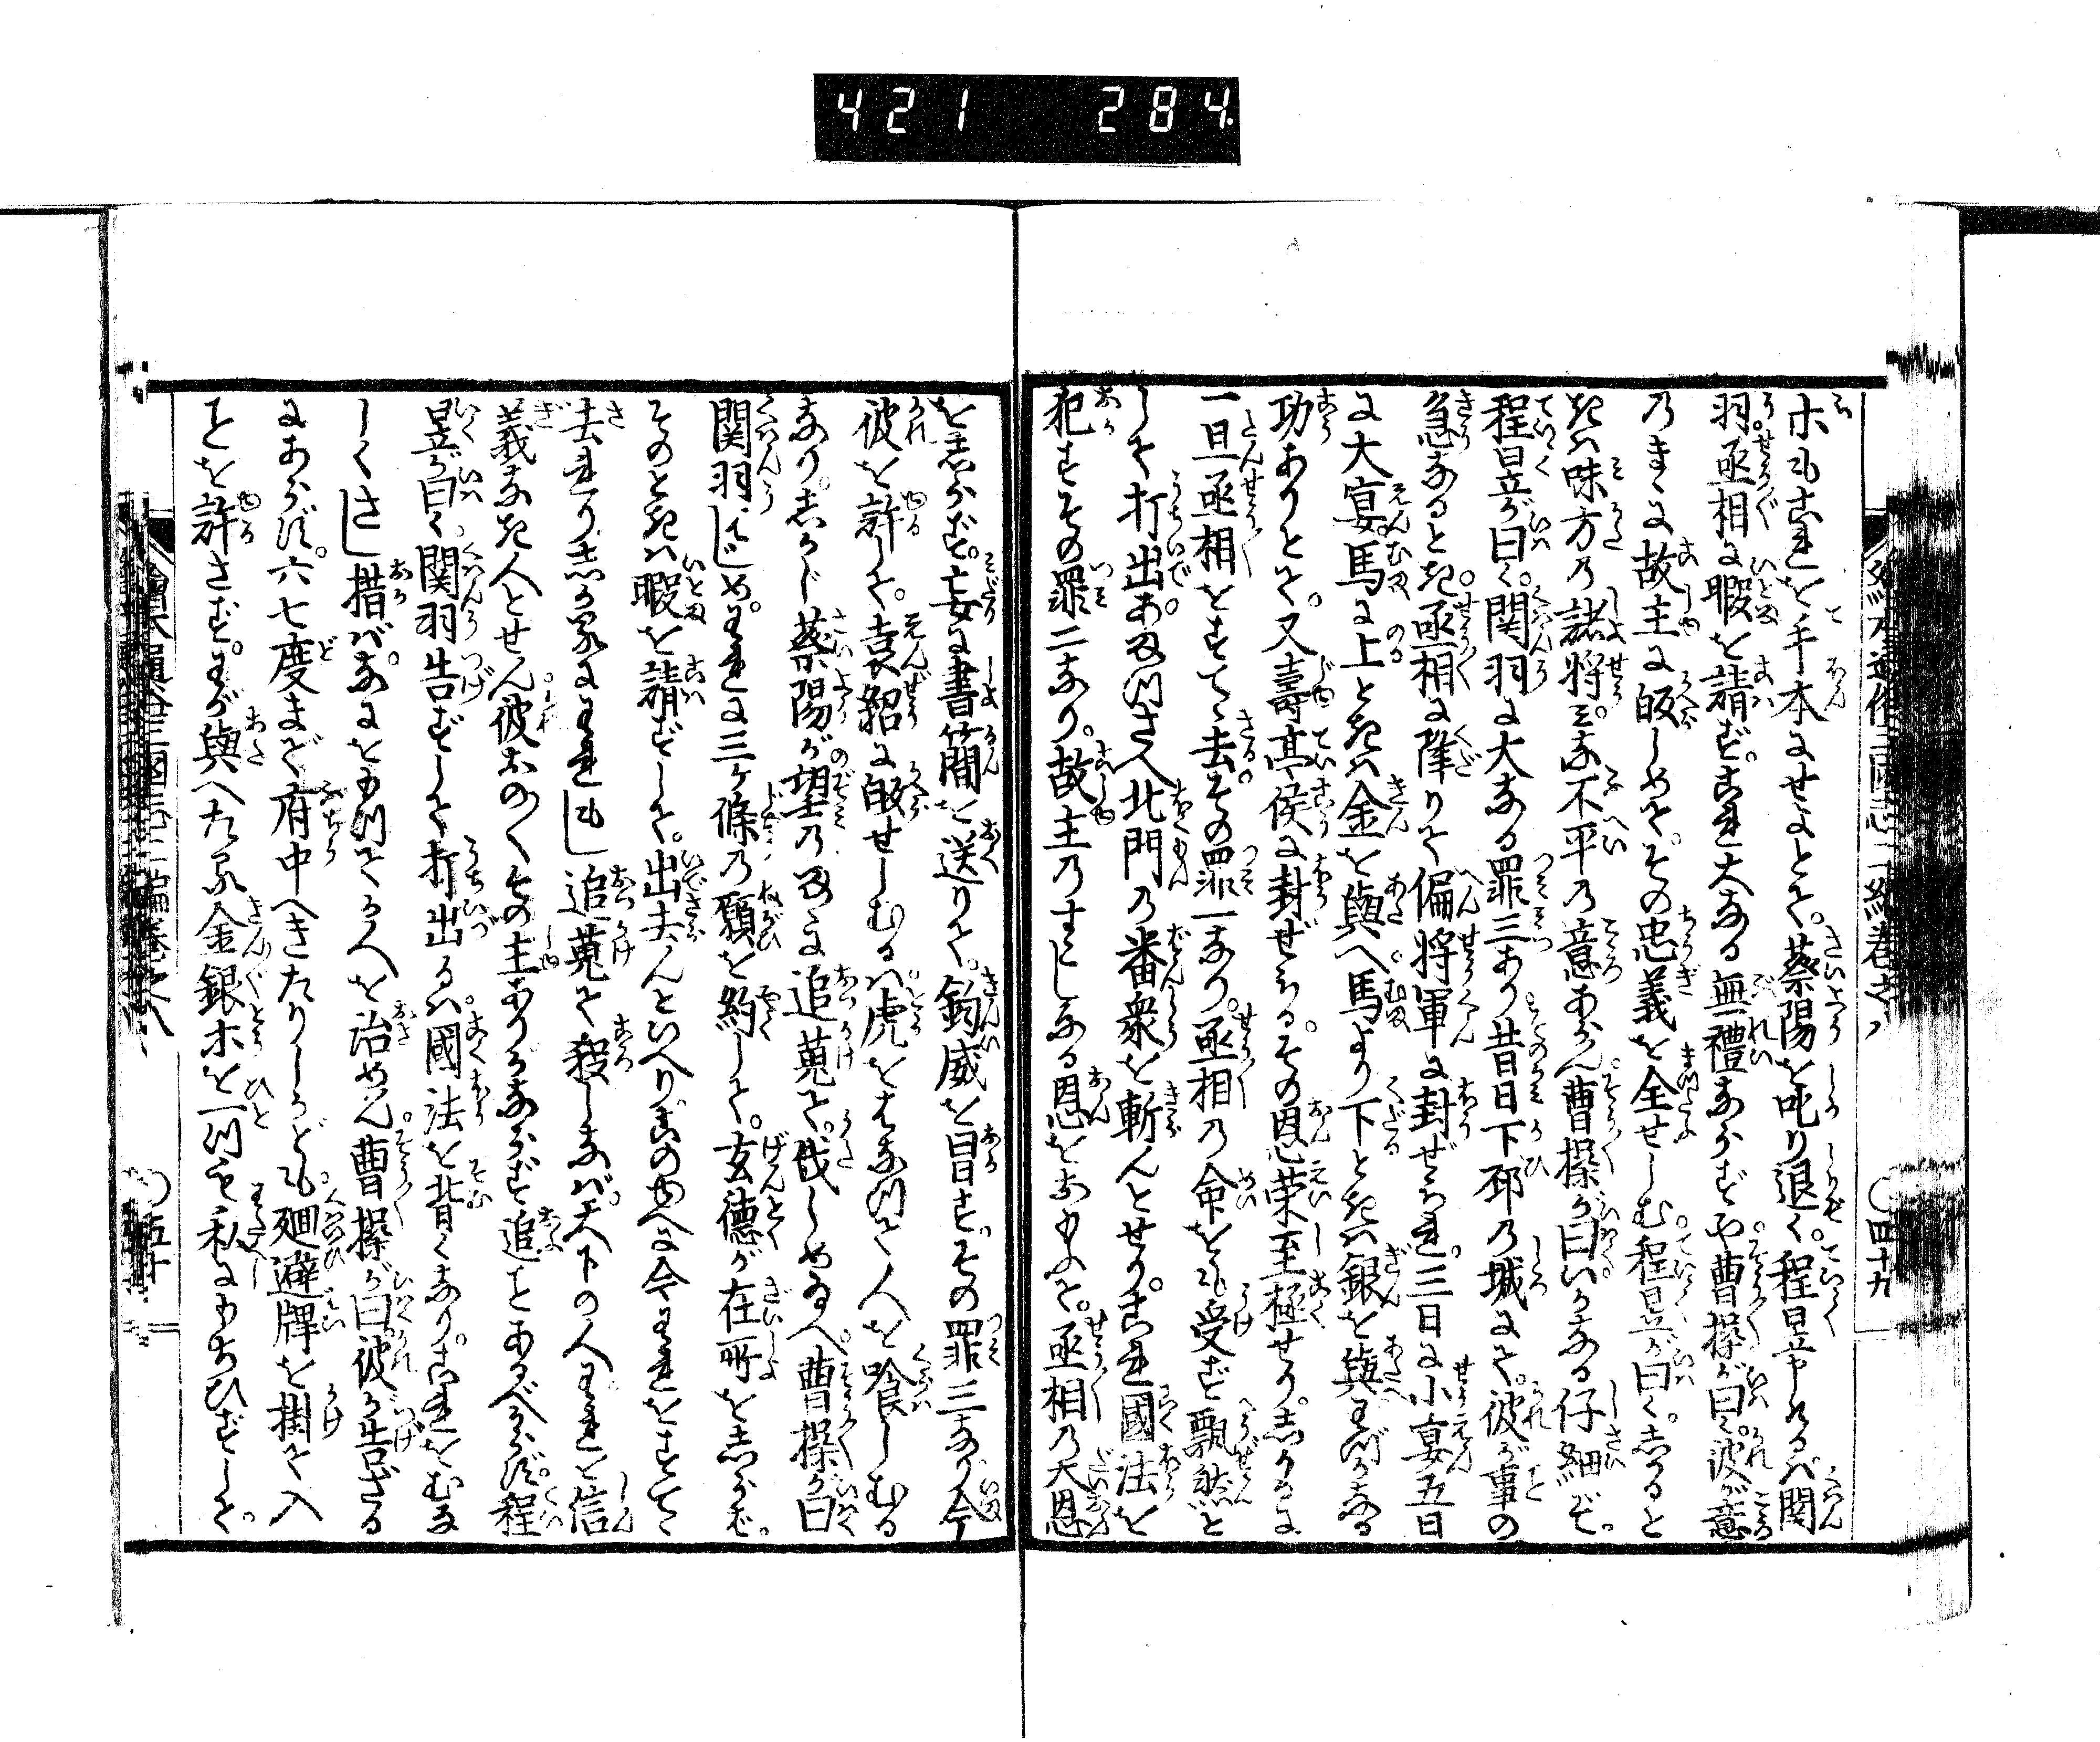 421 284.
ホもこれを手本にせよとて。蔡陽を叱り退く。程昱申けるバ関
羽。丞相に暇を請ず。これ大なる無禮ならずや曹操が曰く彼が意
のまゝに故主に皈しめて。その忠義を全せしむ程昱が曰く。しかると
きハ味方の諸将ミな不平の意あらん曹操が曰いかなる仔細ぞ。
程昱が曰く。関羽に大なる罪三あり昔日下邳の城にて。彼が事の
急なるとき。丞相に降りて偏将軍に封ぜられ。三日に小宴五日
に大宴。馬に上ときハ金を與へ。馬より下ときハ銀を與わづかなる
功ありとて。又壽亭侯に封ぜらる。その恩栄至極せり。しかるに
一旦丞相をすてゝ去。その罪一なり。丞相の命をも受ず飄然と
して打出あまつさへ北門の番衆を斬んとせり。これ國法を
犯すその罪二なり。故主のすこしなる恩をおもふて。丞相の大恩
をしらず。妄に書簡を送りて。鈞威を冒す。その罪三なり今
彼を許して。袁紹に皈せしむるハ。虎をはなつて人を喰しむる
なり。しかじ蔡陽が望のまゝに追蒐て。伐しめ給へ。曹操が曰
関羽はじめ。われに三ケ條の願を約して。玄徳が在所をしらば。
そのとき暇を請ずして。出去んといへり このゆへに今われをすてゝ
去れりしかるにわれもし追蒐て殺しなバ。天下の人われを信
義なき人とせん。彼おのくその主ありかならず追ことあるべからず。程
昱が曰く。関羽告ずして打出るハ。國法を背くなり。これをむな
しくさし措バ。なにをもつてかへを治めん。曹操が曰彼が告ざる
にあらず。六七度まで府中へきたりしかども。廻避牌を掛て入
ことを許さず。わが與へたる金銀ホを一つも私にもちひずして。
四十九
五十